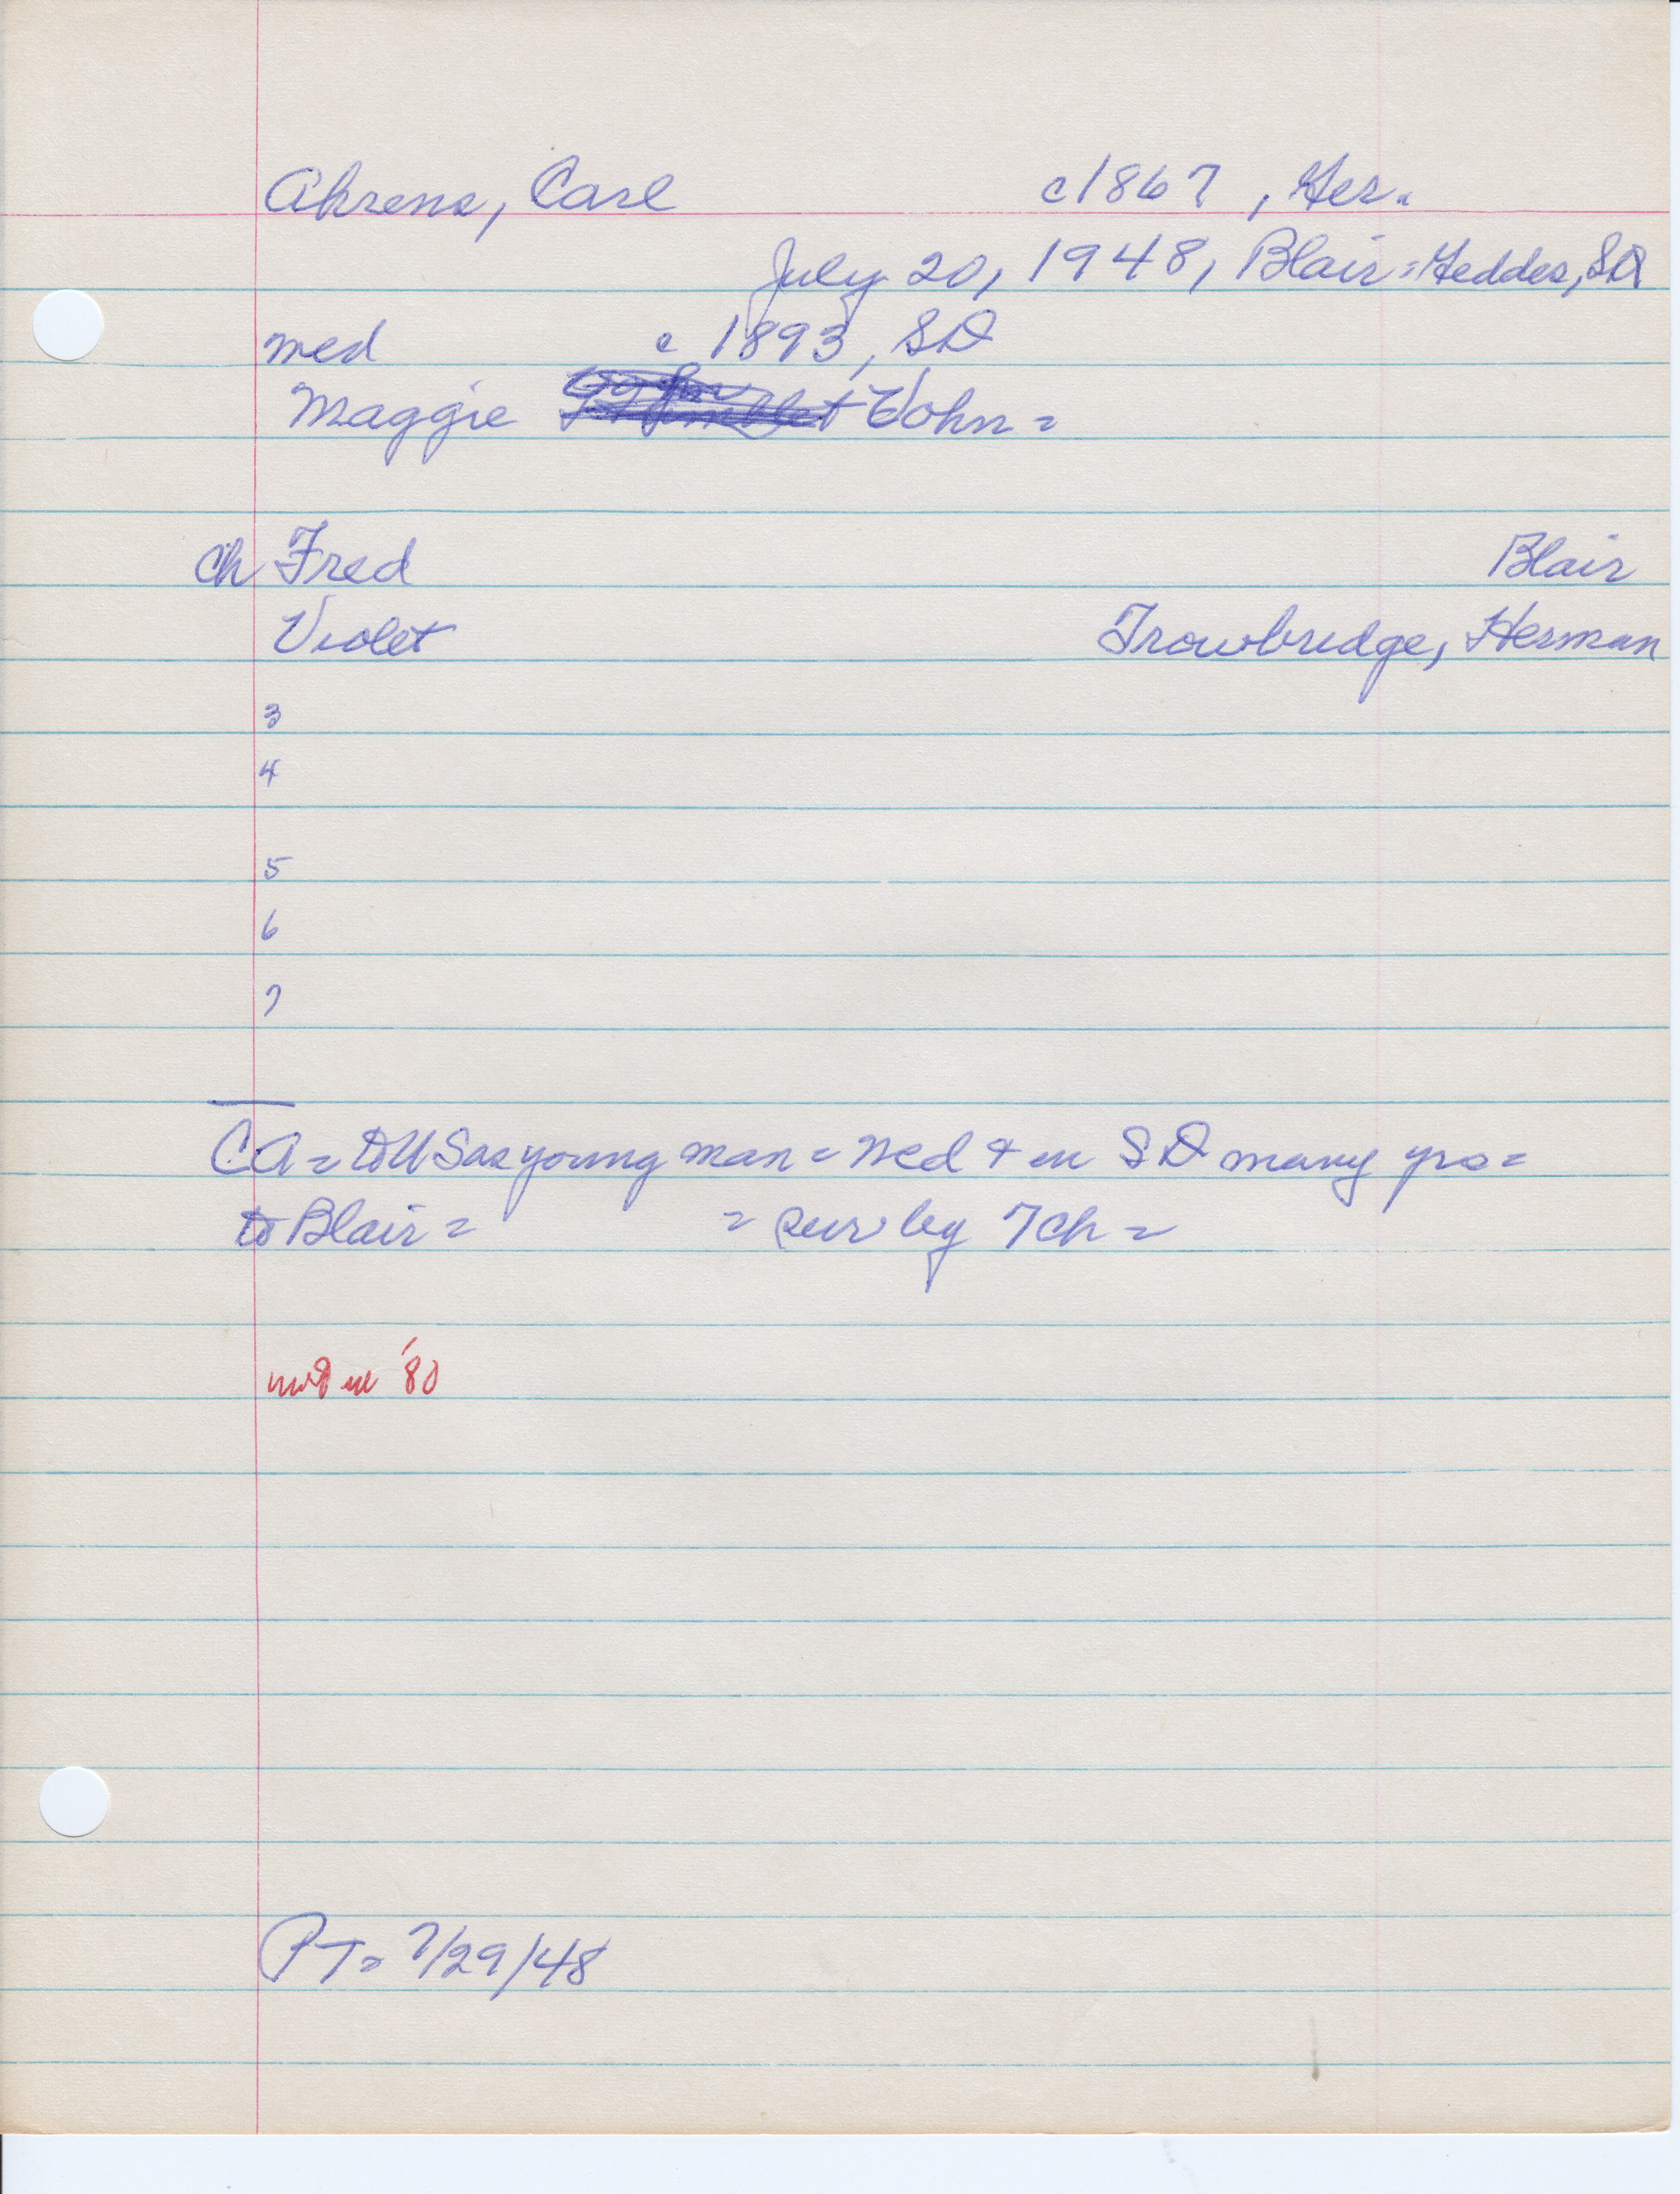 Ahrens, Carl c1867 , Ger.
July 20, 1948, Blair = Geddes, SD
med c 1893, SD
Maggie Vohn =
Ch Fred Blair
Violet Trowbridge, Herman
3
4
5
6
7
CA = to US as young man = med & in SD many yrs =
to Blair = = sur by 7 ch =
not in '80
PT = 7/29/48